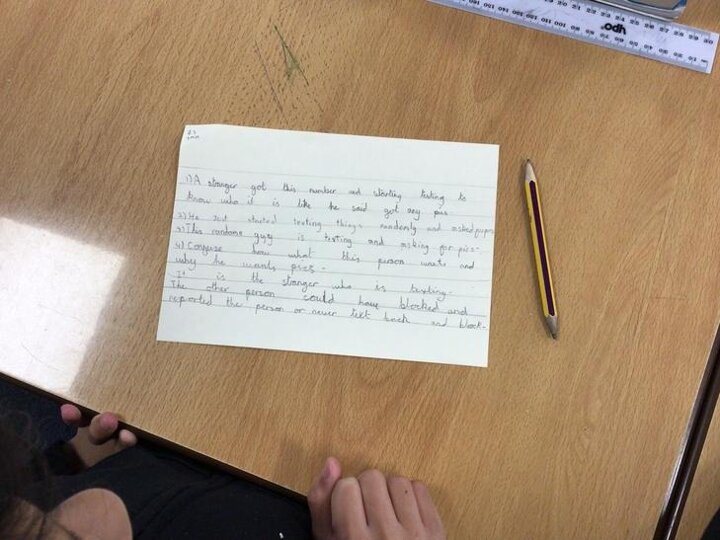 1) A stranger got this number and starting texting to
know who it is like he said got any pics
2) He just started texting things randomly and asked
3) This random guy is texting and asking for pics-
4) Confuse how what this person wants and
why he wants pics-
It is the stranger who is texting-
The other person could have blocked and
reported the person or never text back and block-
ypo